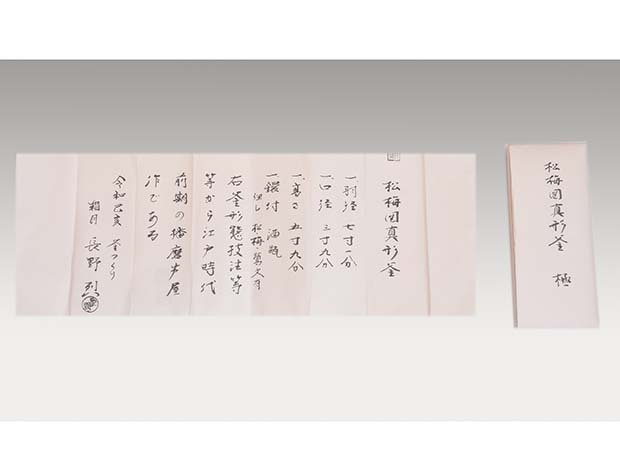 松梅図真形釜
一、羽径 七寸一分
一、口径 三寸九分
一、高さ 五寸九分
一、鐶付 酒瓶
但し 松梅
右釜形態技法等
等から江戸時代
前期の播磨芦屋
作である
令和己亥
霜月 長野 烈
松梅図真形釜 極